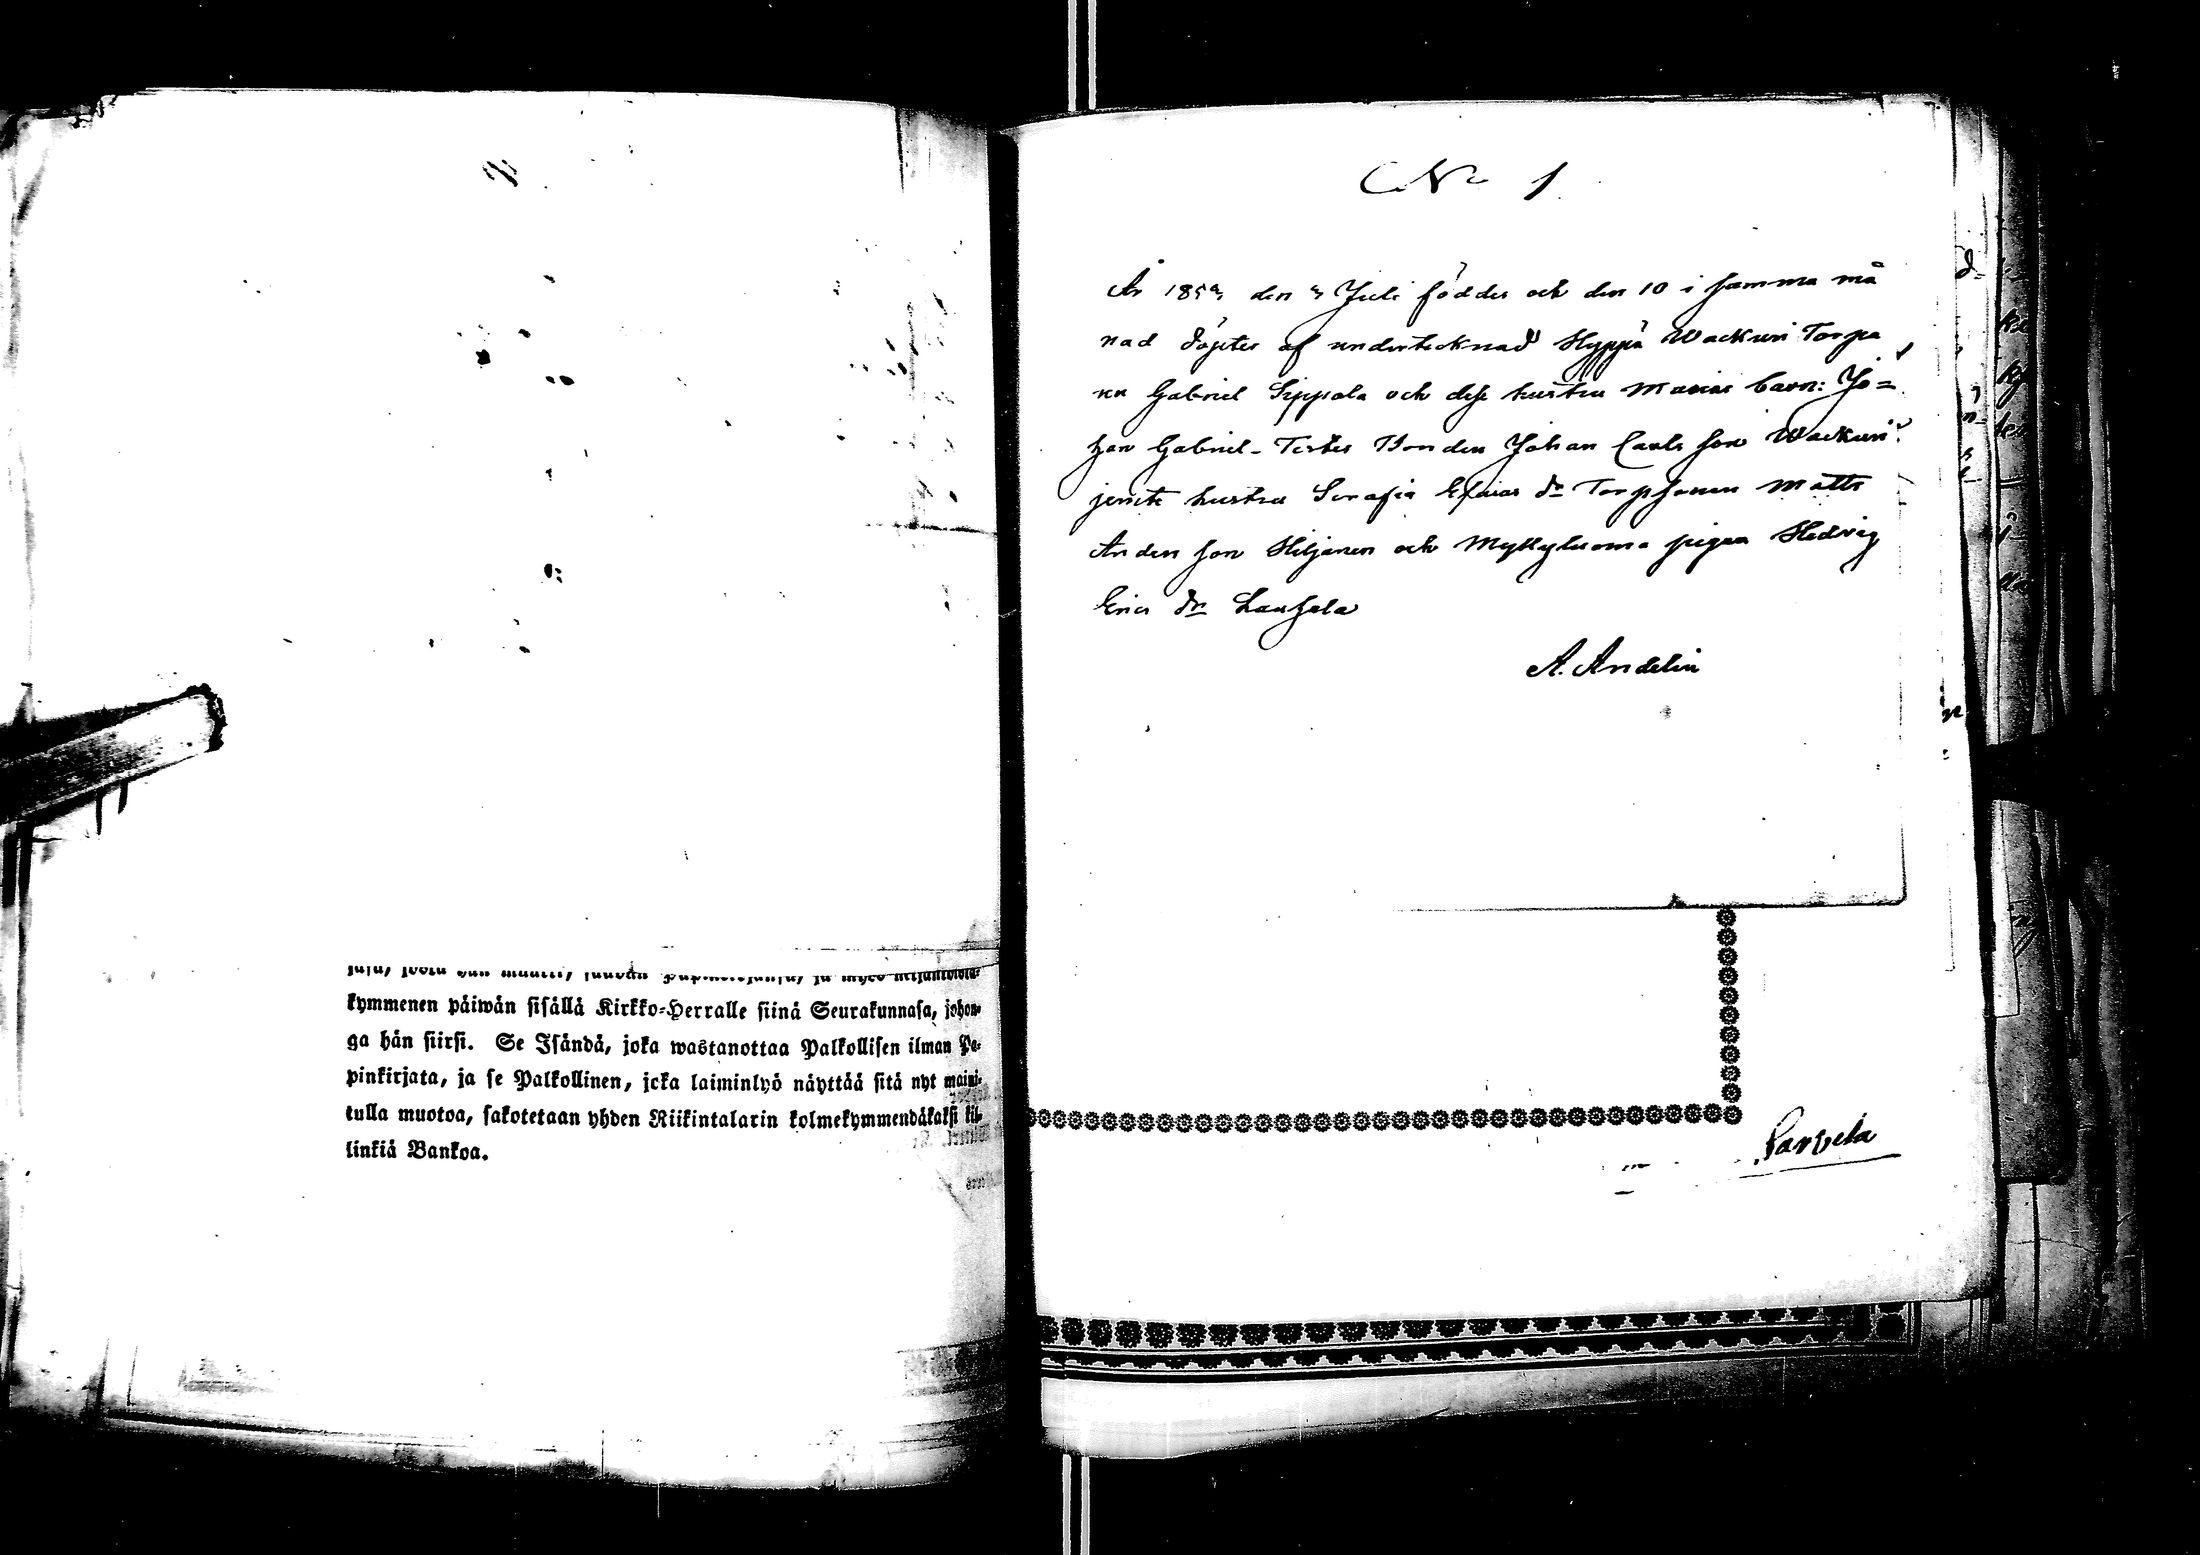 kymmenen päiwän sisällä Kirkko-Herralle siinä Seurakunnasa, johon-
ga hän siirsi. Se Isändä, joka wastanottaa Palkollisen ilman Pa-
pinkirjata, ja se Palkollinen, joka laiminlyö näyttää sitä nyt maini-
tulla muotoa, sakotetaan yhden Riikintalarin kolmekymmendäkaksi kil-
linkiä Bankoa.
No 1
År den Juli föddes och den 10 i samma må
nad döptes af undertecknad Hyppä Wackuri Torpa
re Gabriel Sippola och dess hustru Marias barn: Jo=
han Gabriel - Testes Bonden Johan Carls son Wackuri
jemte hustru Serafia dr Torpsonen Matts
Anders son Hiljanen och Mykyluoma pigan Hedvig
Erics dr
A. Andelin
Parvela